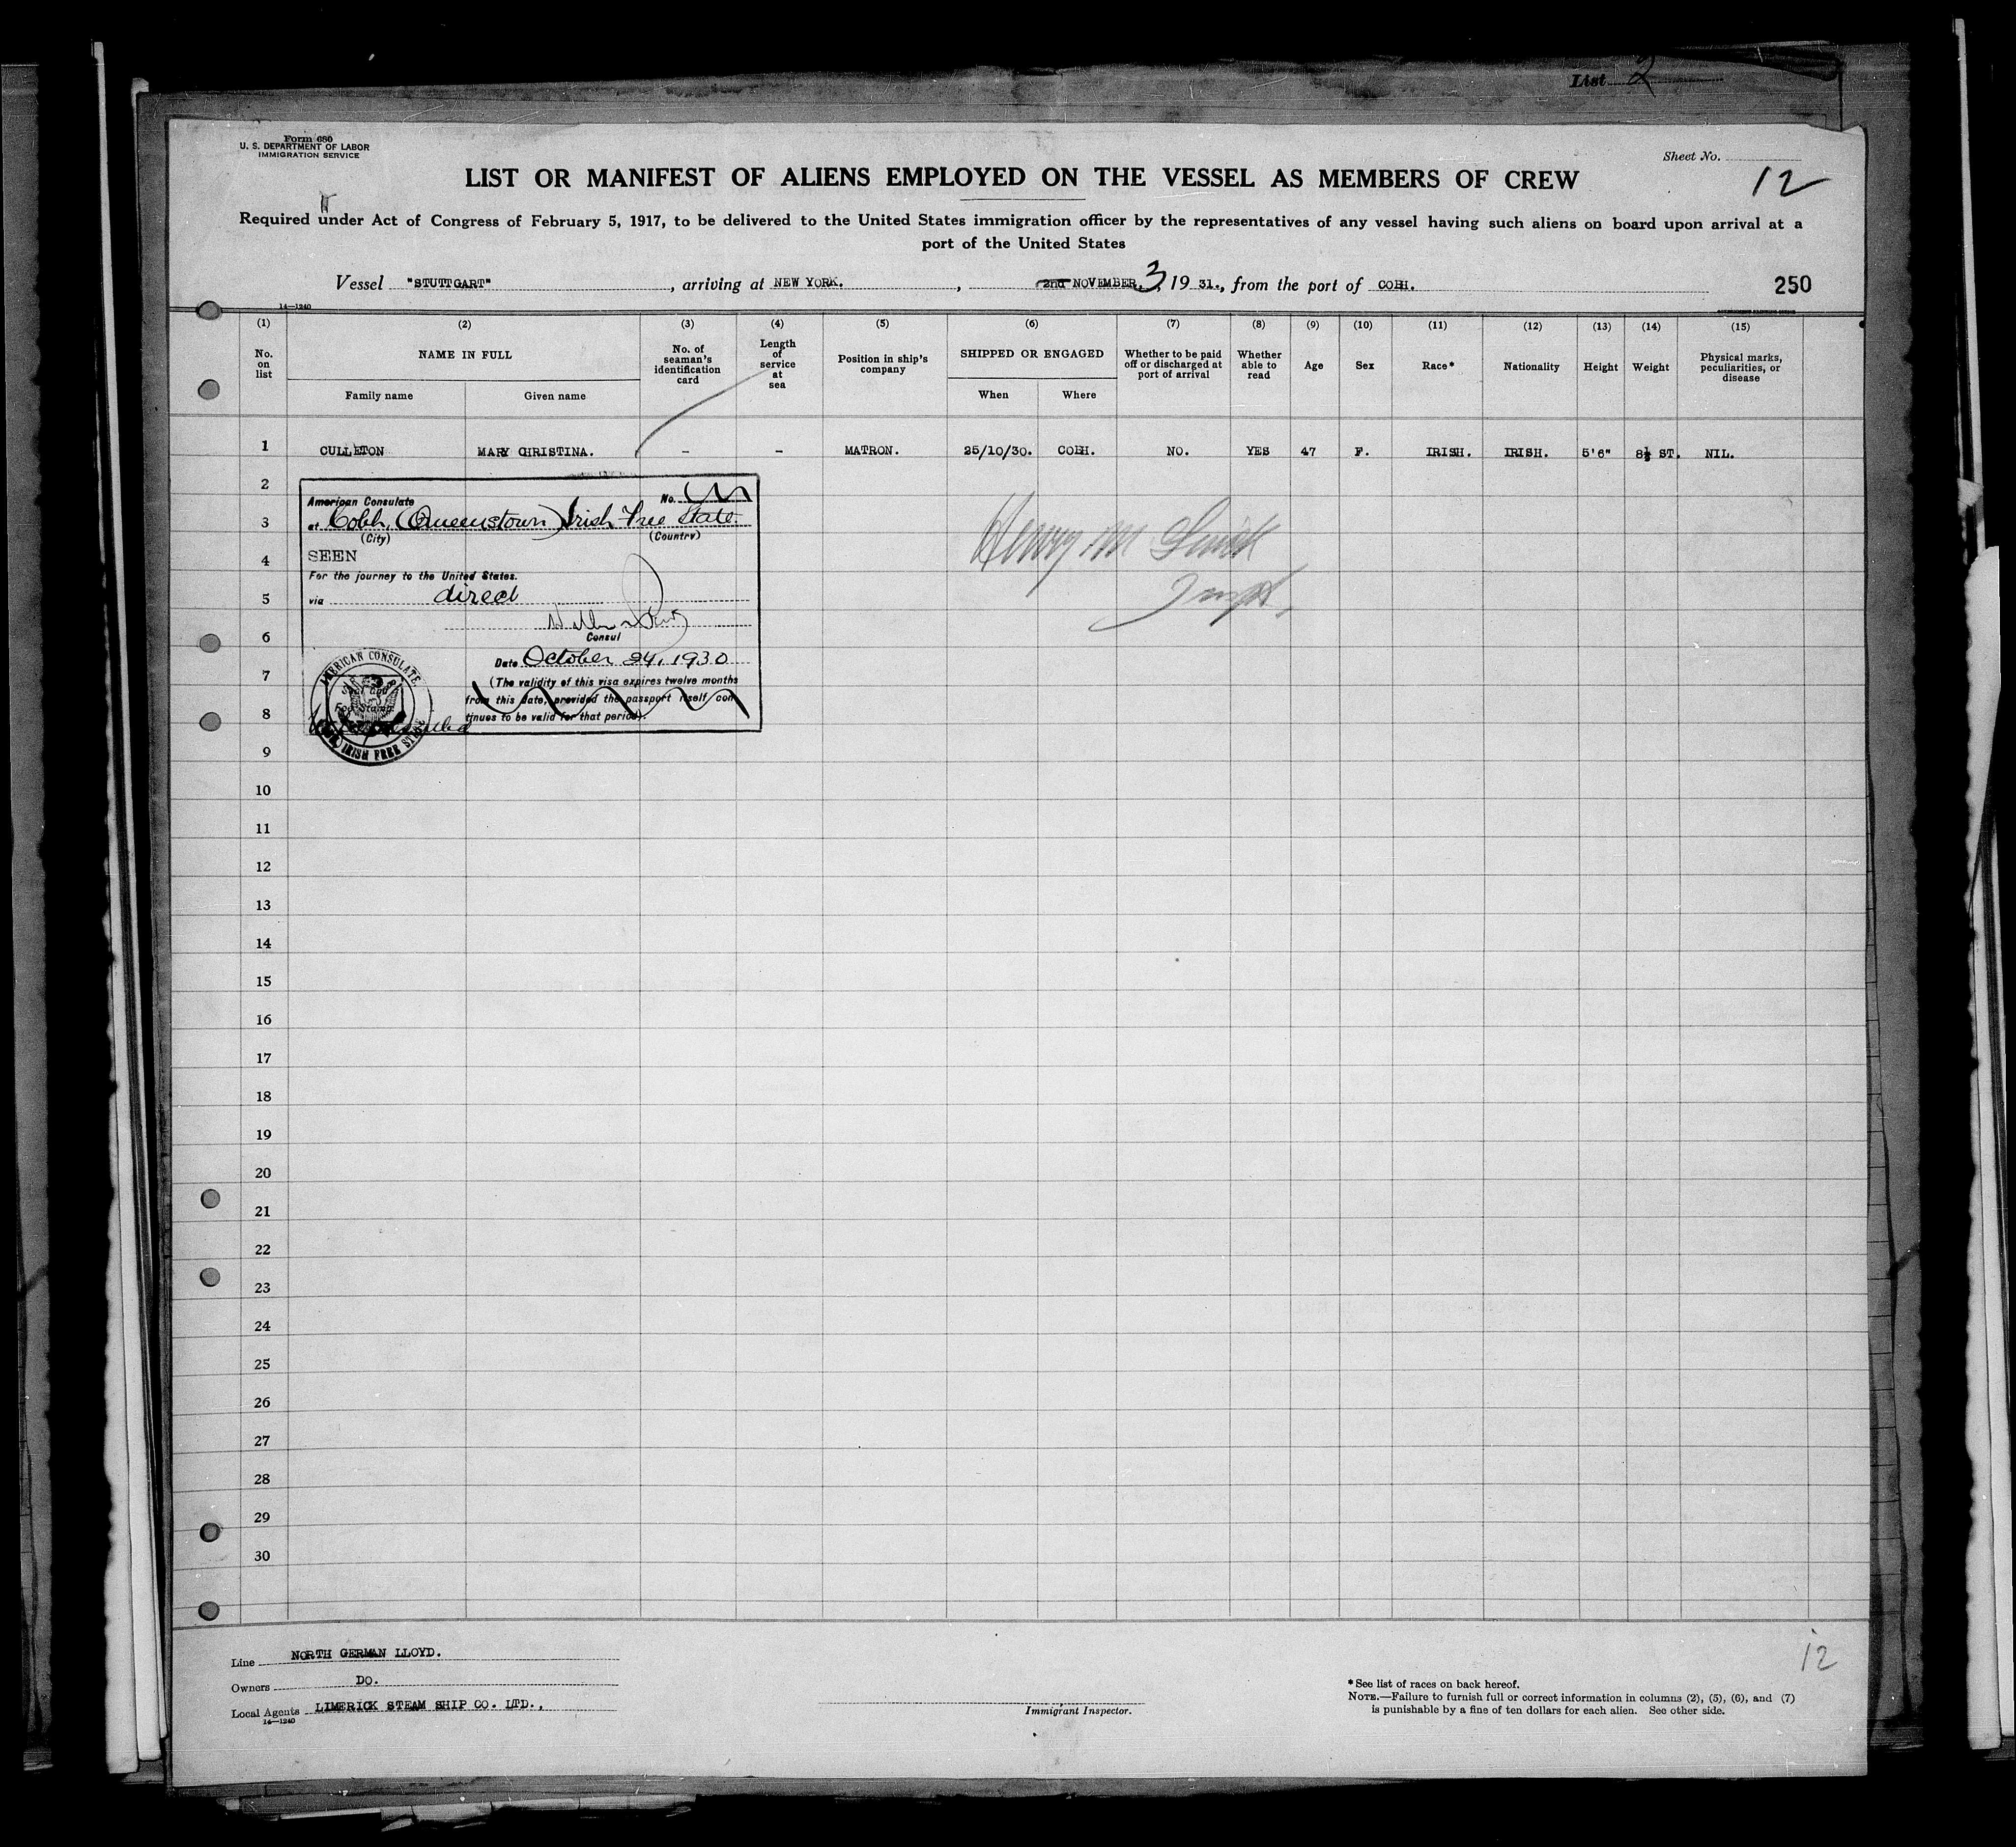 List 2
Form 680
U. S. DEPARTMENT OF LABOR
IMMIGRATION SERVICE
Sheet No.
12
LIST OR MANIFEST OF ALIENS EMPLOYED ON THE VESSEL AS MEMBERS OF CREW
Required under Act of Congress of February 5, 1917, to be delivered to the United States immigration officer by the representatives of any vessel having such aliens on board upon arrival at a
port of the United States
Vessel "STUTTGART", arriving at NEW YORK., 2nd NOVEMBER. 3, 19 31., from the port of COBH.
250
14—1240
(1) (2) (3) (4) (5) (6) (7) (8) (9) (10) (11) (12) (13) (14) (15)
No. on list
NAME IN FULL
Family name
Given name
No. of seaman's identification card
Length of service at sea
Position in ship's company
SHIPPED OR ENGAGED
When
Where
Whether to be paid off or discharged at port of arrival
Whether able to read
Age
Sex
Race*
Nationality
Height
Weight
Physical marks, peculiarities, or disease
1 CULLETON MARY CHRISTINA. - - MATRON. 25/10/30. COBH. NO. YES 47 F. IRISH. IRISH. 5'6" 8½ ST. NIL.
2
3
4
5
6
7
8
9
10
11
12
13
14
15
16
17
18
19
20
21
22
23
24
25
26
27
28
29
30
American Consulate No.
at Cobh, (Queenstown) Irish Free State.
(City) (Country)
SEEN
For the journey to the United States.
via direct
Consul
Date October 24, 1930
(The validity of this visa expires twelve months
from this date, provided the passport itself con
tinues to be valid for that period).
AMERICAN CONSULATE
IRISH FREE STATE
Henry M
Insp.
Line NORTH GERMAN LLOYD.
Owners DO.
Local Agents LIMERICK STEAM SHIP CO. LTD.,
14—1240
Immigrant Inspector.
12
* See list of races on back hereof.
NOTE.—Failure to furnish full or correct information in columns (2), (5), (6), and (7)
is punishable by a fine of ten dollars for each alien. See other side.